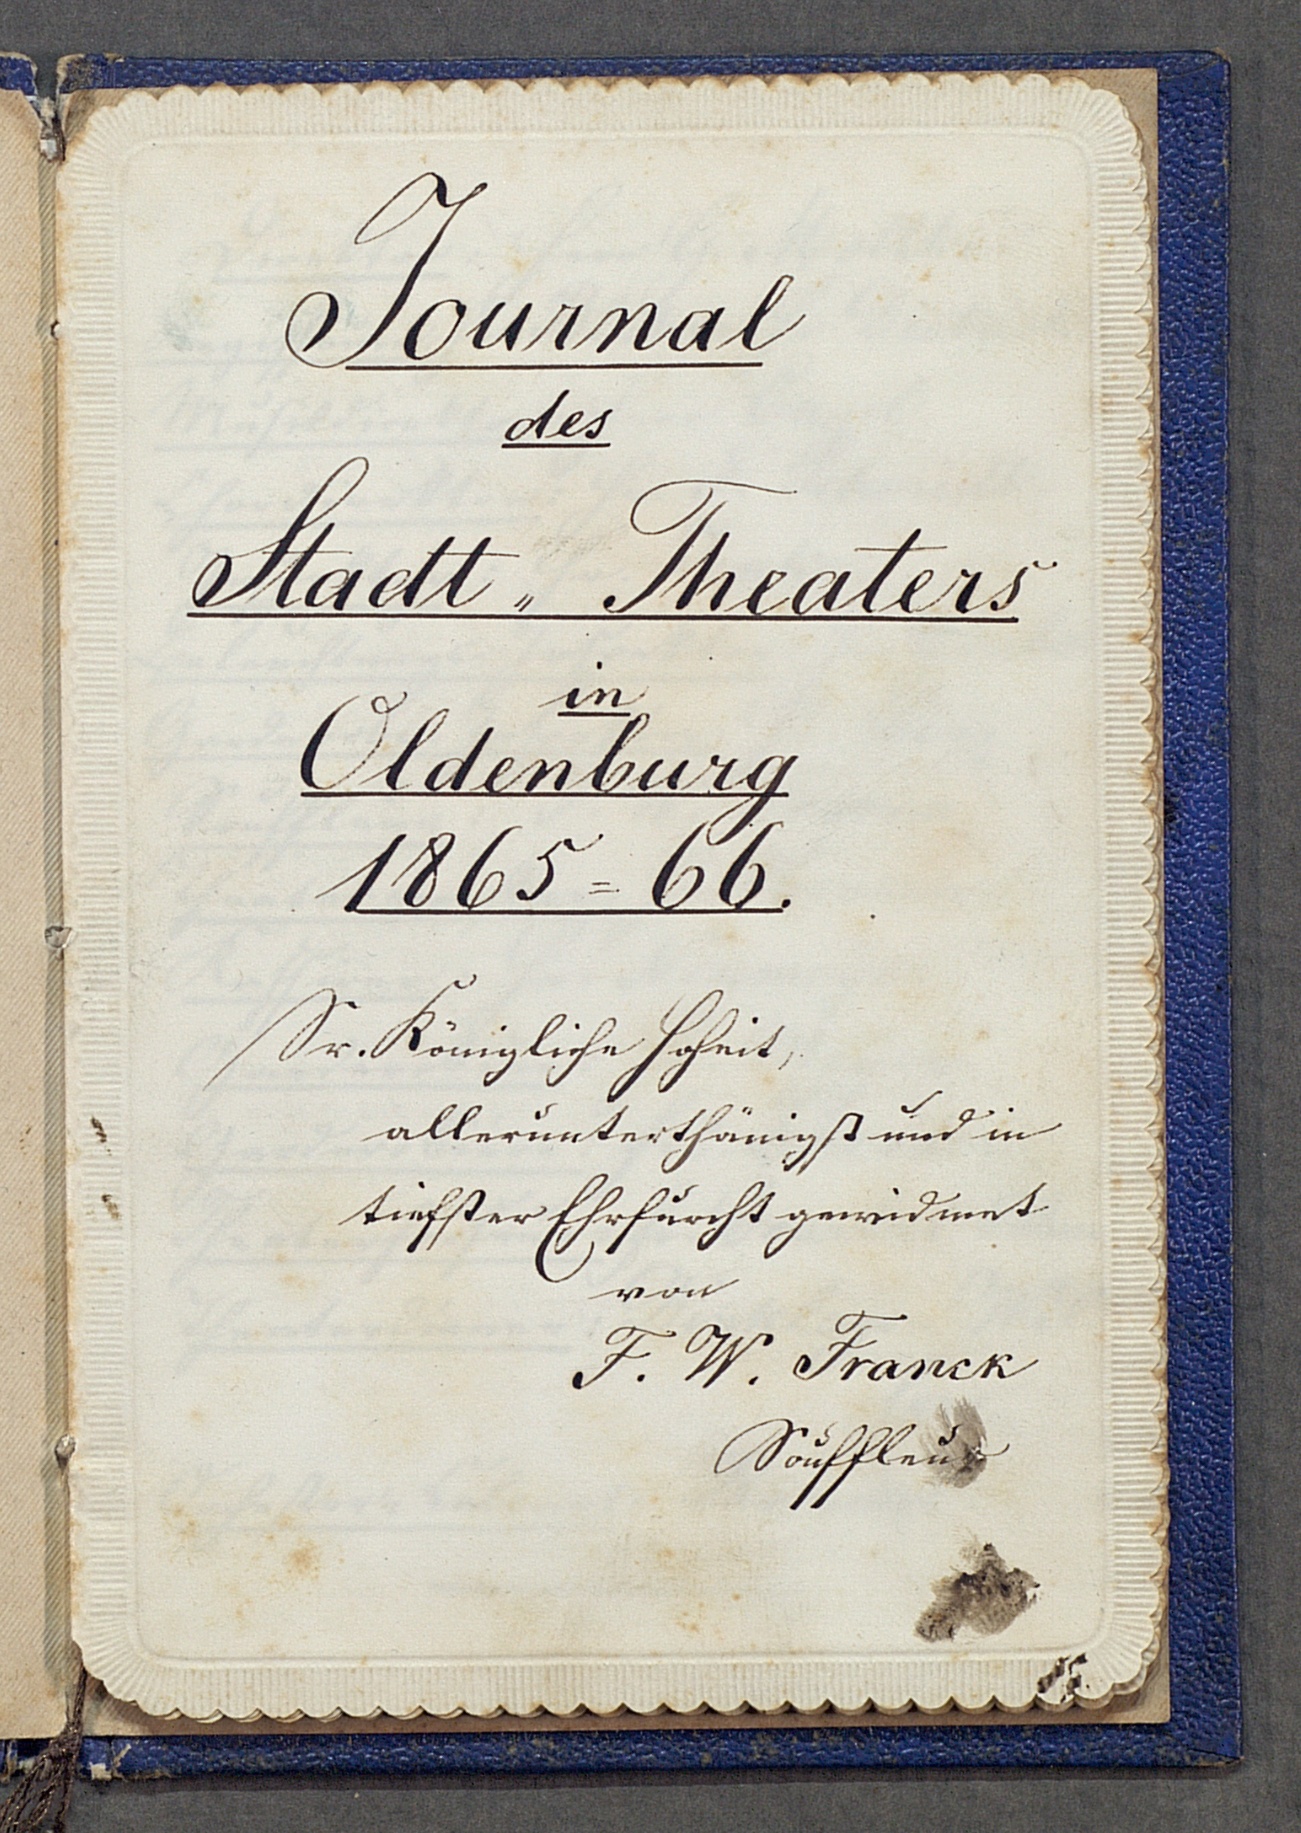 Journal
des
Stadt „ Theaters
in
Oldenburg
1865 = 66.
Sr. Königliche Hoheit,
allerunterthänigst und in
tiefster Ehrfurcht gewidmet
von
F. W. Franck
Souffleur